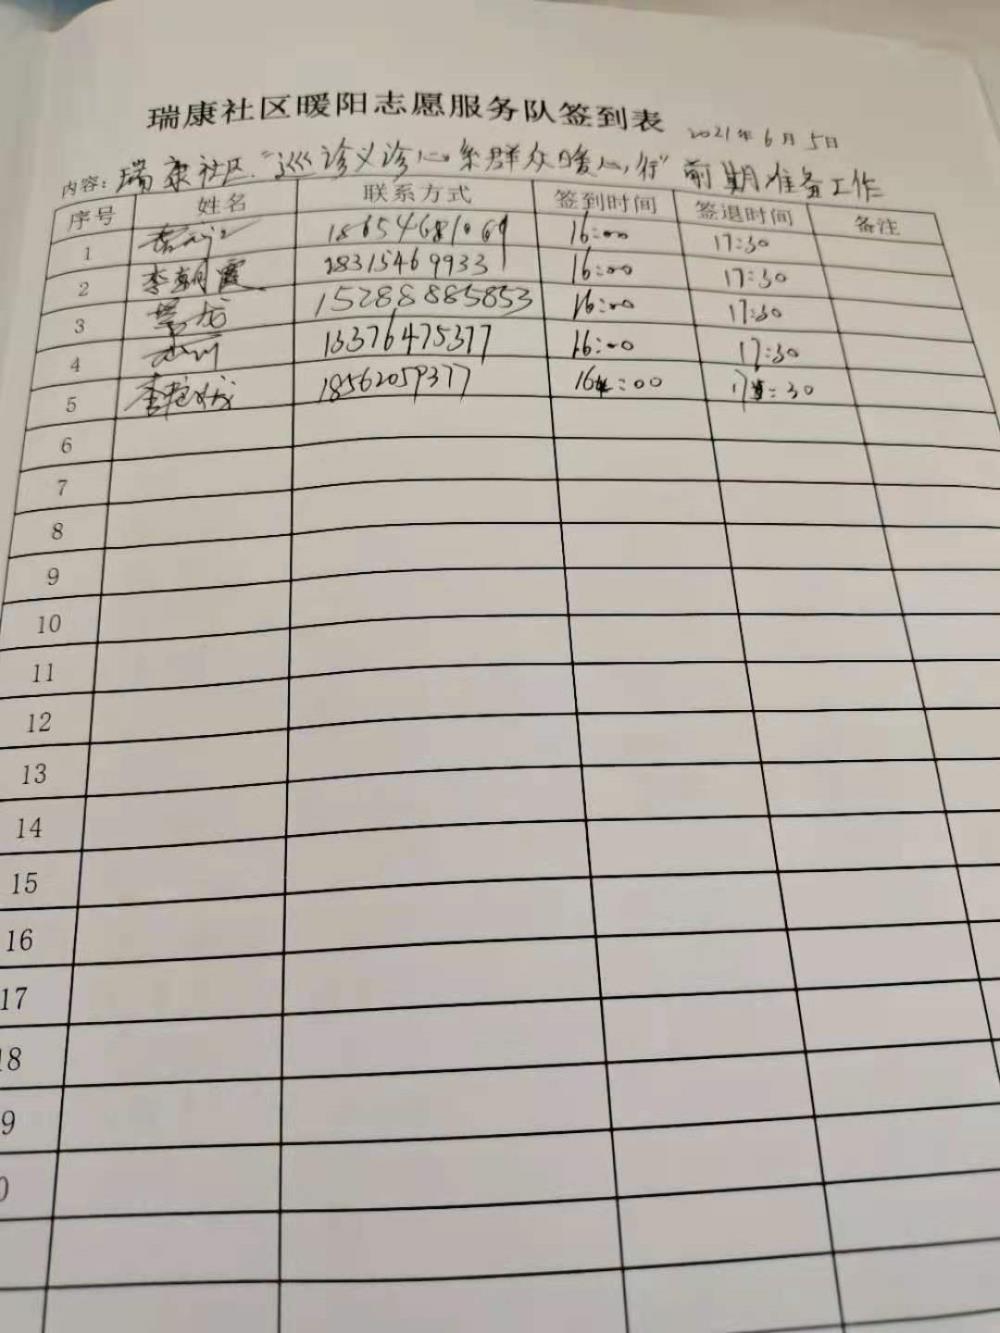 瑞康社区暖阳志愿服务队签到表
2021年6月5日
内容: 瑞康社区"巡诊义诊心系群众暖心行"前期准备工作
序号 姓名 联系方式 签到时间 签退时间 备注
1 18654681069 16:00 17:30
2 李朝霞 18315469933 16:00 17:30
3 15288885853 16:00 17:30
4 16:00 17:30
5 18562059377 16:00 17:30
6
7
8
9
10
11
12
13
14
15
16
17
18
9
0